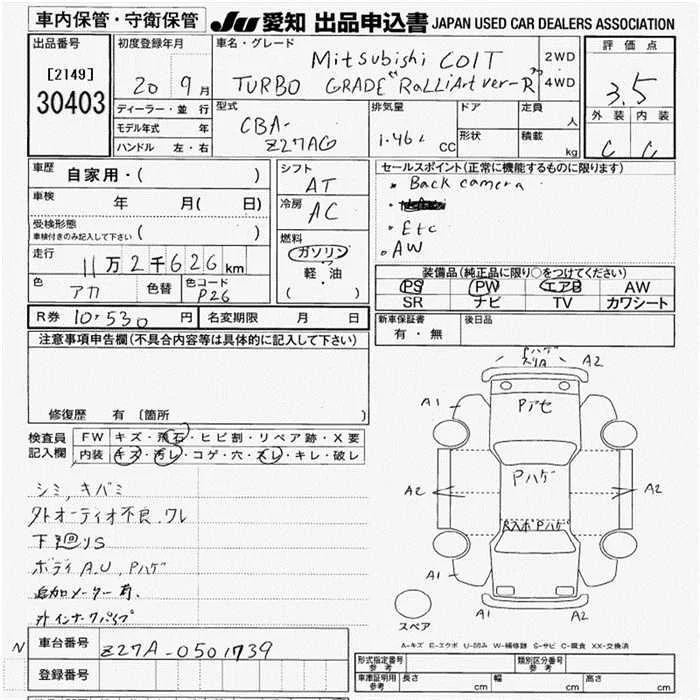 車内保管・守衛保管 JU 愛知 出品申込書 JAPAN USED CAR DEALERS ASSOCIATION
出品番号
[2149]
30403
初度登録年月
20 9月
ディーラー・並 行
モデル年式 年
ハンドル 左・右
車名・グレード
Mitsubishi COLT
TURBO GRADE "RaLLiArt ver-R"
2WD
4WD
型式
CBA-
Z27AG
排気量
1.46L cc
ドア
形状
定員
人
積載
kg
評価点
3.5
外装 内装
C C
車歴
自家用・( )
車検
年 月( 日)
受検形態
車検付きのみ記入して下さい ( )
走行
11万2千626km
色
アカ
色替
色コード
P26
シフト
AT
冷房
AC
燃料
ガソリン
軽・油
( )
セールスポイント(正常に機能するものに限ります)
・Back camera
・Etc
・AW
装備品(純正品に限り○をつけてください)
PS PW エアB AW
SR ナビ TV カワシート
R券 10,530 円 名変期限 月 日
新車保証書
有・無
後日品
注意事項申告欄(不具合内容等は具体的に記入して下さい)
修復歴 有 (箇所
検査員
記入欄
FW キズ・飛石・ヒビ割・リペア跡・X要
内装 キズ・汚レ・コゲ・穴・スレ・キレ・破レ
シミ,キバミ
外オーディオ不良.ワレ
下廻りS
ボディA.U,Pハゲ
追加メーター有.
外インナーパイプ
Pハゲ
スリA
A2
A1 Pアセ A1
A2 Pハゲ A2
Pハゲ
A1 A2
A1 A2
スペア
A-キズ E-エクボ U-凹み W-補修跡 S-サビ C-腐食 XX-交換済
N 車台番号 Z27A-0501739
登録番号
形式指定番号
参考
類別区分番号
参考
車庫証明用
参考
長さ cm 幅 cm 高さ cm